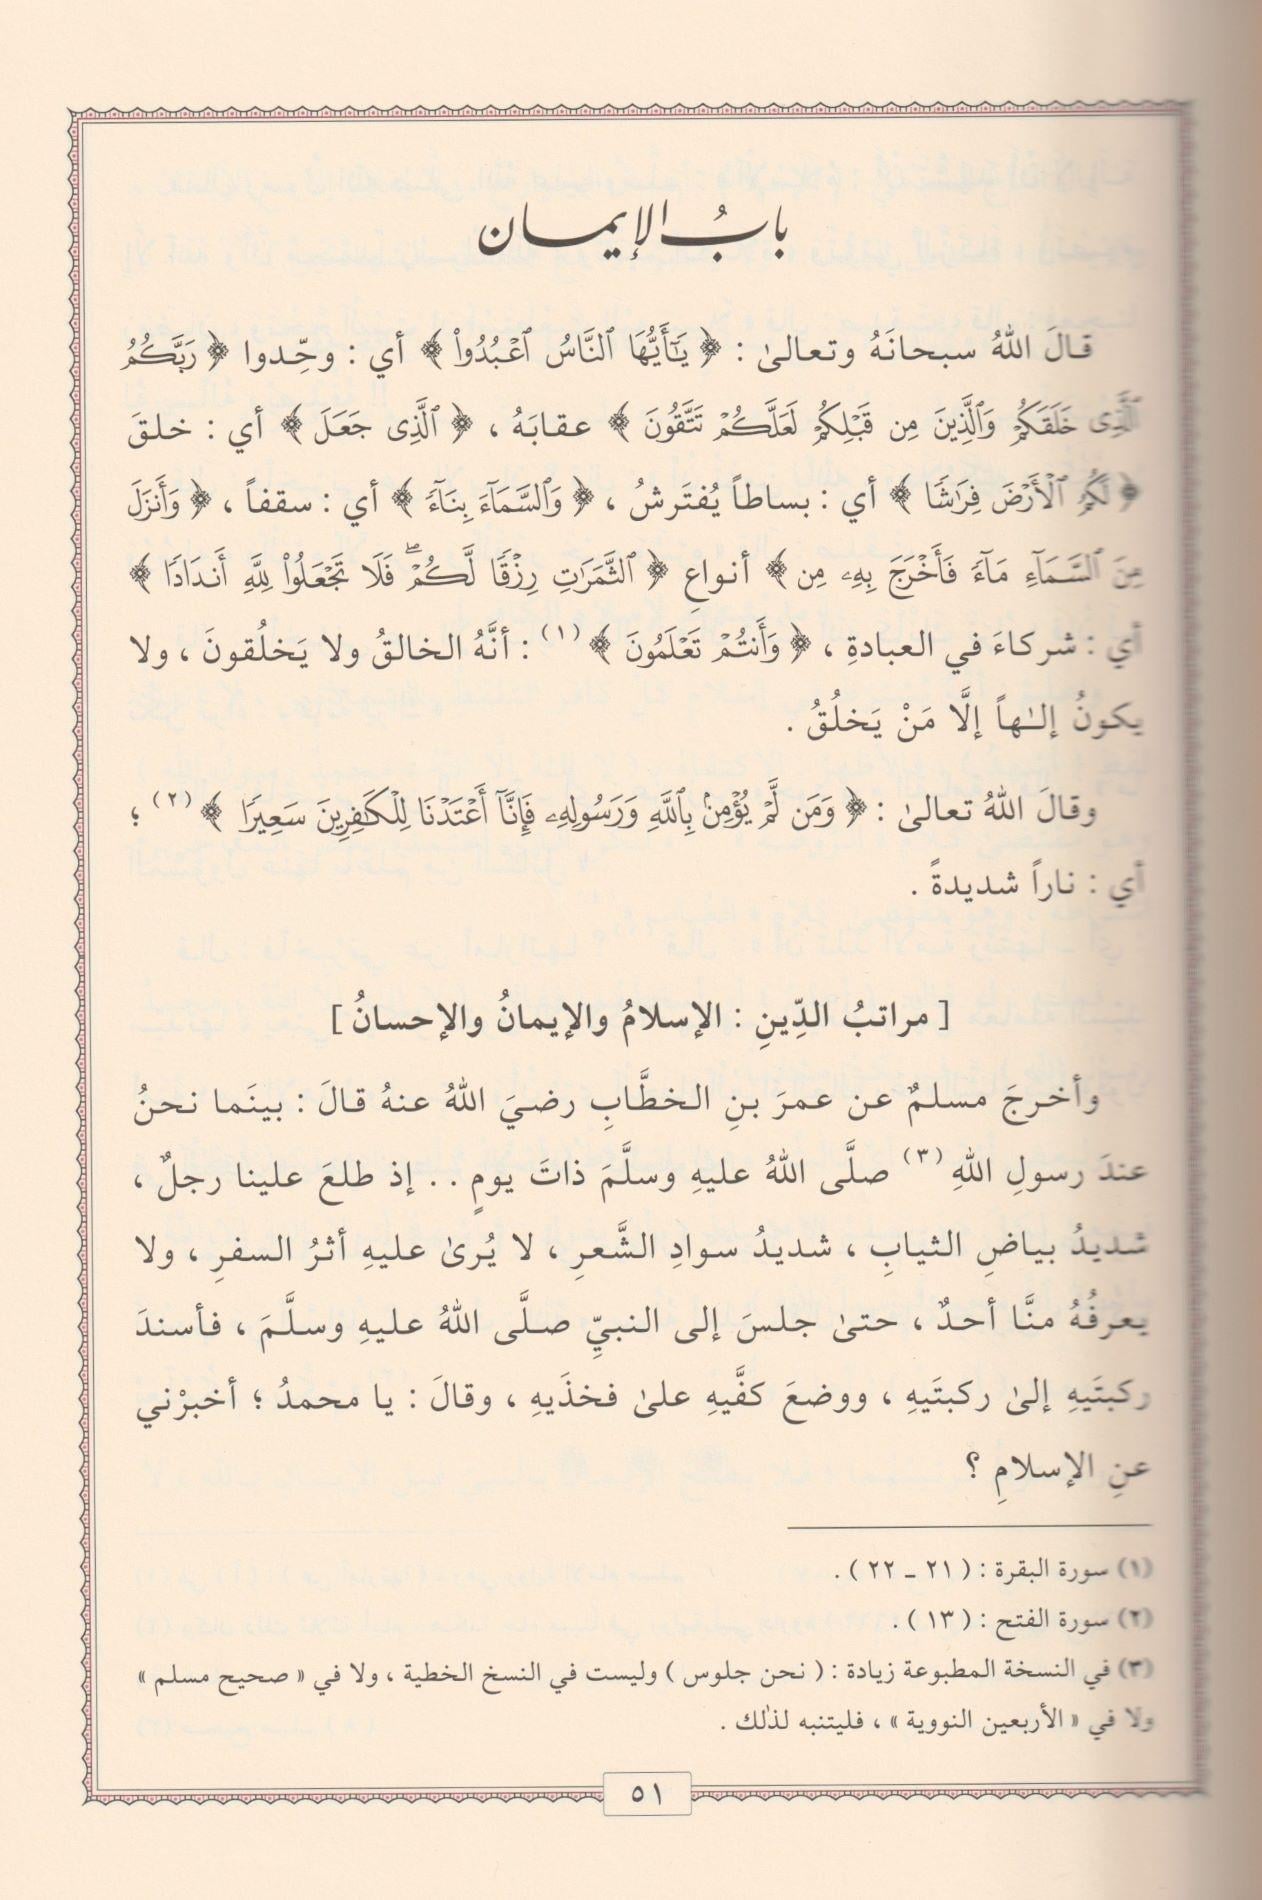 بابُ الإيمان
قالَ اللهُ سبحانَهُ وتعالىٰ : ﴿ يَـٰٓأَيُّهَا ٱلنَّاسُ ٱعْبُدُوا۟ ﴾ أي : وحِّدوا ﴿ رَبَّكُمُ
ٱلَّذِى خَلَقَكُمْ وَٱلَّذِينَ مِن قَبْلِكُمْ لَعَلَّكُمْ تَتَّقُونَ ﴾ عقابَهُ ، ﴿ ٱلَّذِى جَعَلَ ﴾ أي : خلقَ
﴿ لَكُمُ ٱلْأَرْضَ فِرَٰشًا ﴾ أي : بساطاً يُفتَرشُ ، ﴿ وَٱلسَّمَآءَ بِنَآءً ﴾ أي : سقفاً ، ﴿ وَأَنزَلَ
مِنَ ٱلسَّمَآءِ مَآءً فَأَخْرَجَ بِهِۦ مِن ﴾ أنواعِ ﴿ ٱلثَّمَرَٰتِ رِزْقًا لَّكُمْ ۖ فَلَا تَجْعَلُوا۟ لِلَّهِ أَندَادًا ﴾
أي : شركاءَ في العبادةِ ، ﴿ وَأَنتُمْ تَعْلَمُونَ ﴾ (١) : أنَّهُ الخالقُ ولا يَخلُقونَ ، ولا
يكونُ إلـٰهاً إلَّا مَنْ يَخلُقُ .
وقالَ اللهُ تعالىٰ : ﴿ وَمَن لَّمْ يُؤْمِنۢ بِٱللَّهِ وَرَسُولِهِۦ فَإِنَّآ أَعْتَدْنَا لِلْكَـٰفِرِينَ سَعِيرًا ﴾ (٢) ؛
أي : ناراً شديدةً .
[ مراتبُ الدِّينِ : الإسلامُ والإيمانُ والإحسانُ ]
وأخرجَ مسلمٌ عن عمرَ بنِ الخطَّابِ رضيَ اللهُ عنهُ قالَ : بينَما نحنُ
عندَ رسولِ اللهِ (٣) صلَّى اللهُ عليهِ وسلَّمَ ذاتَ يومٍ . . إذ طلعَ علينا رجلٌ ،
شديدُ بياضِ الثيابِ ، شديدُ سوادِ الشَّعرِ ، لا يُرىٰ عليهِ أثرُ السفرِ ، ولا
يعرفُهُ منَّا أحدٌ ، حتىٰ جلسَ إلى النبيِّ صلَّى اللهُ عليهِ وسلَّمَ ، فأسندَ
ركبتَيهِ إلىٰ ركبتَيهِ ، ووضعَ كفَّيهِ علىٰ فخذَيهِ ، وقالَ : يا محمدُ ؛ أخبرْني
عنِ الإسلامِ ؟
(١) سورة البقرة : ( ٢١ ـ ٢٢ ) .
(٢) سورة الفتح : ( ١٣ ) .
(٣) في النسخة المطبوعة زيادة : ( نحن جلوس ) وليست في النسخ الخطية ، ولا في « صحيح مسلم »
ولا في « الأربعين النووية » ، فليتنبه لذٰلك .
٥١